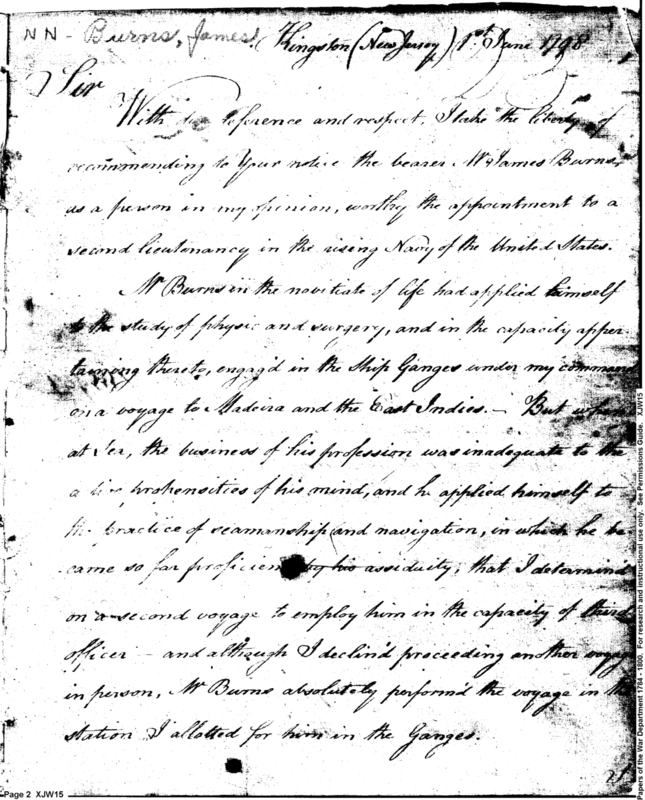 NN - Burns, James
Kingston (New Jersey) 1st June 1798
Sir
With due deference and respect, I take the liberty of
recommending to your notice the bearer Mr James Burns,
as a person in my opinion, worthy the appointment to a
second lieutenancy in the rising Navy of the United States.
Mr Burns in the novitiate of life had applied himself
to the study of physic and surgery, and in the capacity apper-
taining thereto, engag'd in the Ship Ganges under my command
on a voyage to Madeira and the East Indies. - But when
at Sea, the business of his profession was inadequate to the
active propensities of his mind, and he applied himself to
the practice of seamanship and navigation, in which he be
came so far proficient by his assiduity, that I determind
on a second voyage to employ him in the capacity of third
officer - and although I declin'd proceeding another voyage
in person, Mr Burns absolutely perform'd the voyage in the
station I allotted for him in the Ganges.
Page 2 XJW15
Papers of the War Department 1784 - 1800. For research and instructional use only. See Permissions Guide. XJW15